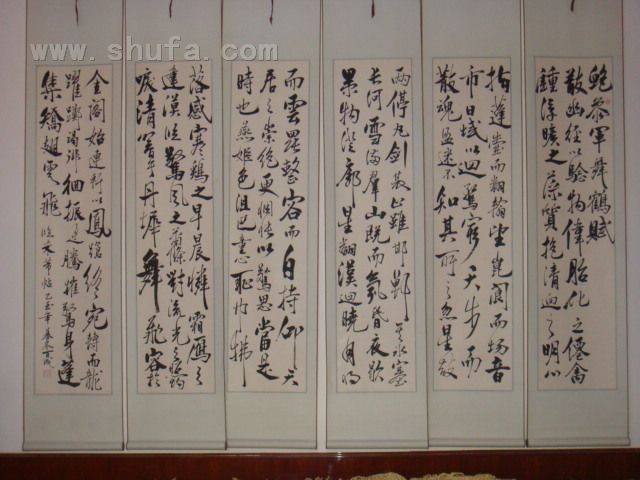 www.shufa.com
鲍参軍舞鶴賦
散幽经以驗物偉胎化之僊禽
鍾浮曠之藻質抱清迥之明心
指蓬壺而翻翰望崑閬而揚音
帀日域以迴鶩窮天步而
散魂盪迷不知其所之忽星散
兩停丸劍散止雖邯鄲冰塞
长河雪滿群山既而氛昏夜歇
景物澄廓星翻漢迴曉月将
而雲罷整容而自持仰天
居之崇絶更惆悵以驚思當是
時也燕姬色沮巴童心恥巾拂
落感寒鷄之早晨憐霜鴈之
違漠臨驚風之蕭條對流光之照灼
唳清響于丹墀舞飛容於
金閣始連軒以鳳蹌終宛轉而龍
躍躑躅徘徊振迅騰摧驚身蓬
集矯翅雪飛 臨米芾帖